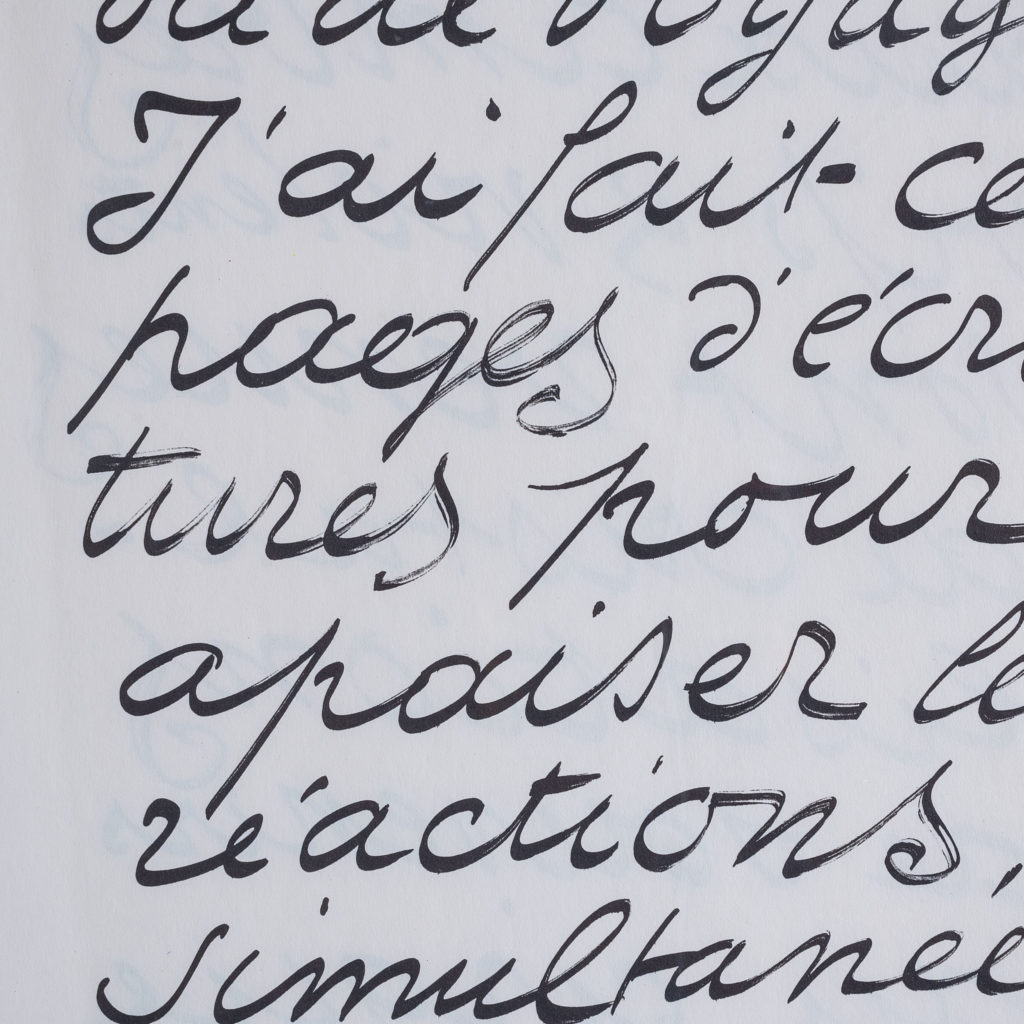 de voyag
J'ai fait ce
pages d'écri
tures pour
apaiser le
réactions
simultané